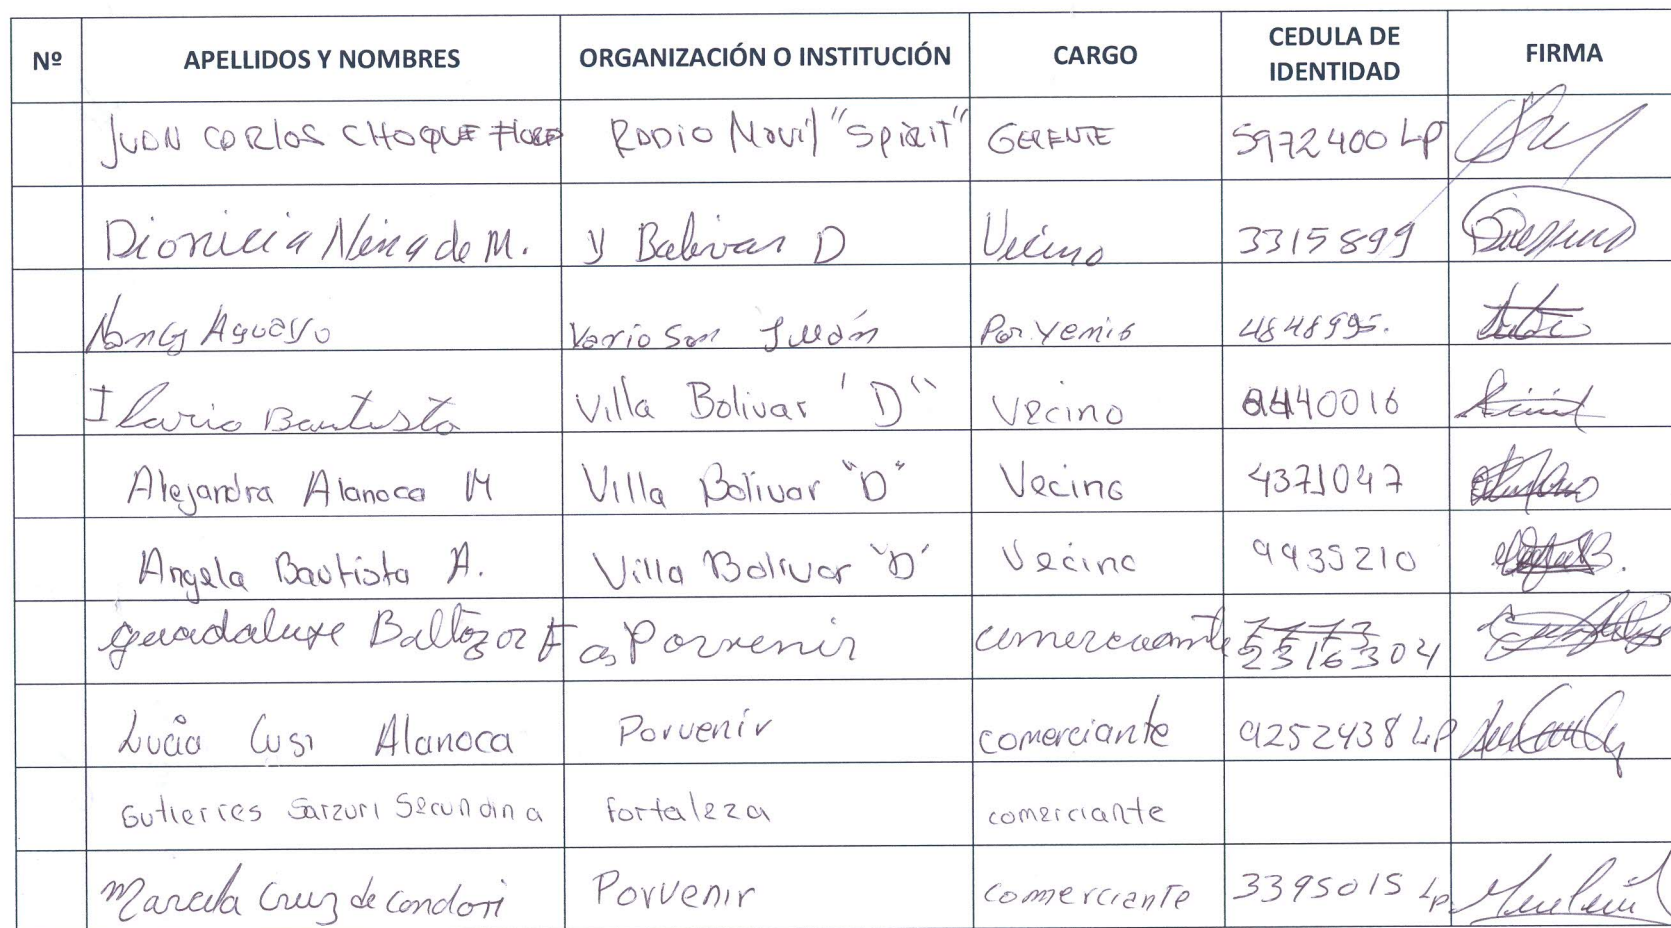 Nº APELLIDOS Y NOMBRES ORGANIZACIÓN O INSTITUCIÓN CARGO CEDULA DE IDENTIDAD FIRMA
JUAN CARLOS CHOQUE FLORES RADIO Movil "Spirit" GERENTE 5972400 LP
Dionicia Nina de M. V Bolivar D Vecino 3315899
Nancy Aguayo Vario San Julián Por.venir 4848995.
Ilario Bautista Villa Bolivar 'D" Vecino 40016
Alejandra Alanoca M Villa Bolivar "D" Vecino 4371047
Angela Bautista A. Villa Bolivar "D' Vecino 9935210
guadalupe Baltazar F Porvenir comerciante 2316304
Lucia Cusi Alanoca Porvenir comerciante 9252438 LP
Gutierres Sarzuri Secundina fortaleza comerciante
Marcela Cruz de Condori Porvenir comerciante 3395015 Lp